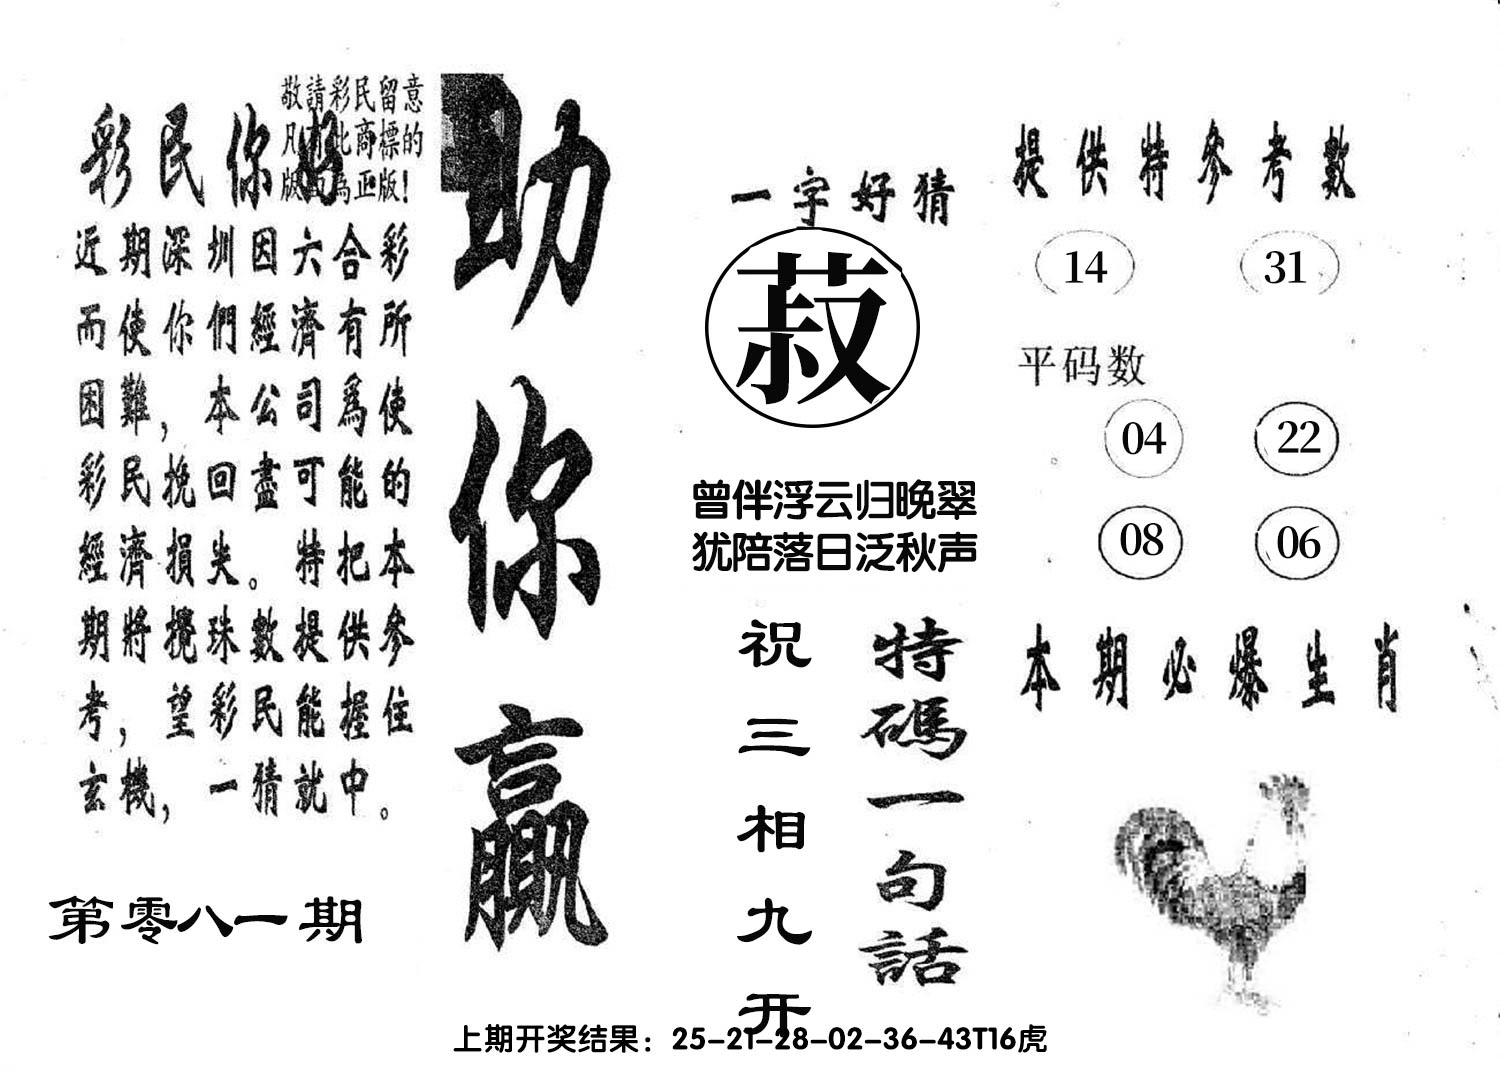 敬請彩民留意
凡有此商標的
版面為正版!
彩民你好
近期深圳因六合彩
而使你們經濟有所
困難，本公司爲使
彩民挽回盡可能的
經濟損失。特把本
期將攪珠數提供參
考，望彩民能握住
玄機，一猜就中。
第零八一期
助你贏
一字好猜
菽
曾伴浮云归晚翠
犹陪落日泛秋声
特碼一句話
祝三相九开
提供特參考數
14 31
平码数
04 22
08 06
本期必爆生肖
上期开奖结果：25-21-28-02-36-43T16虎